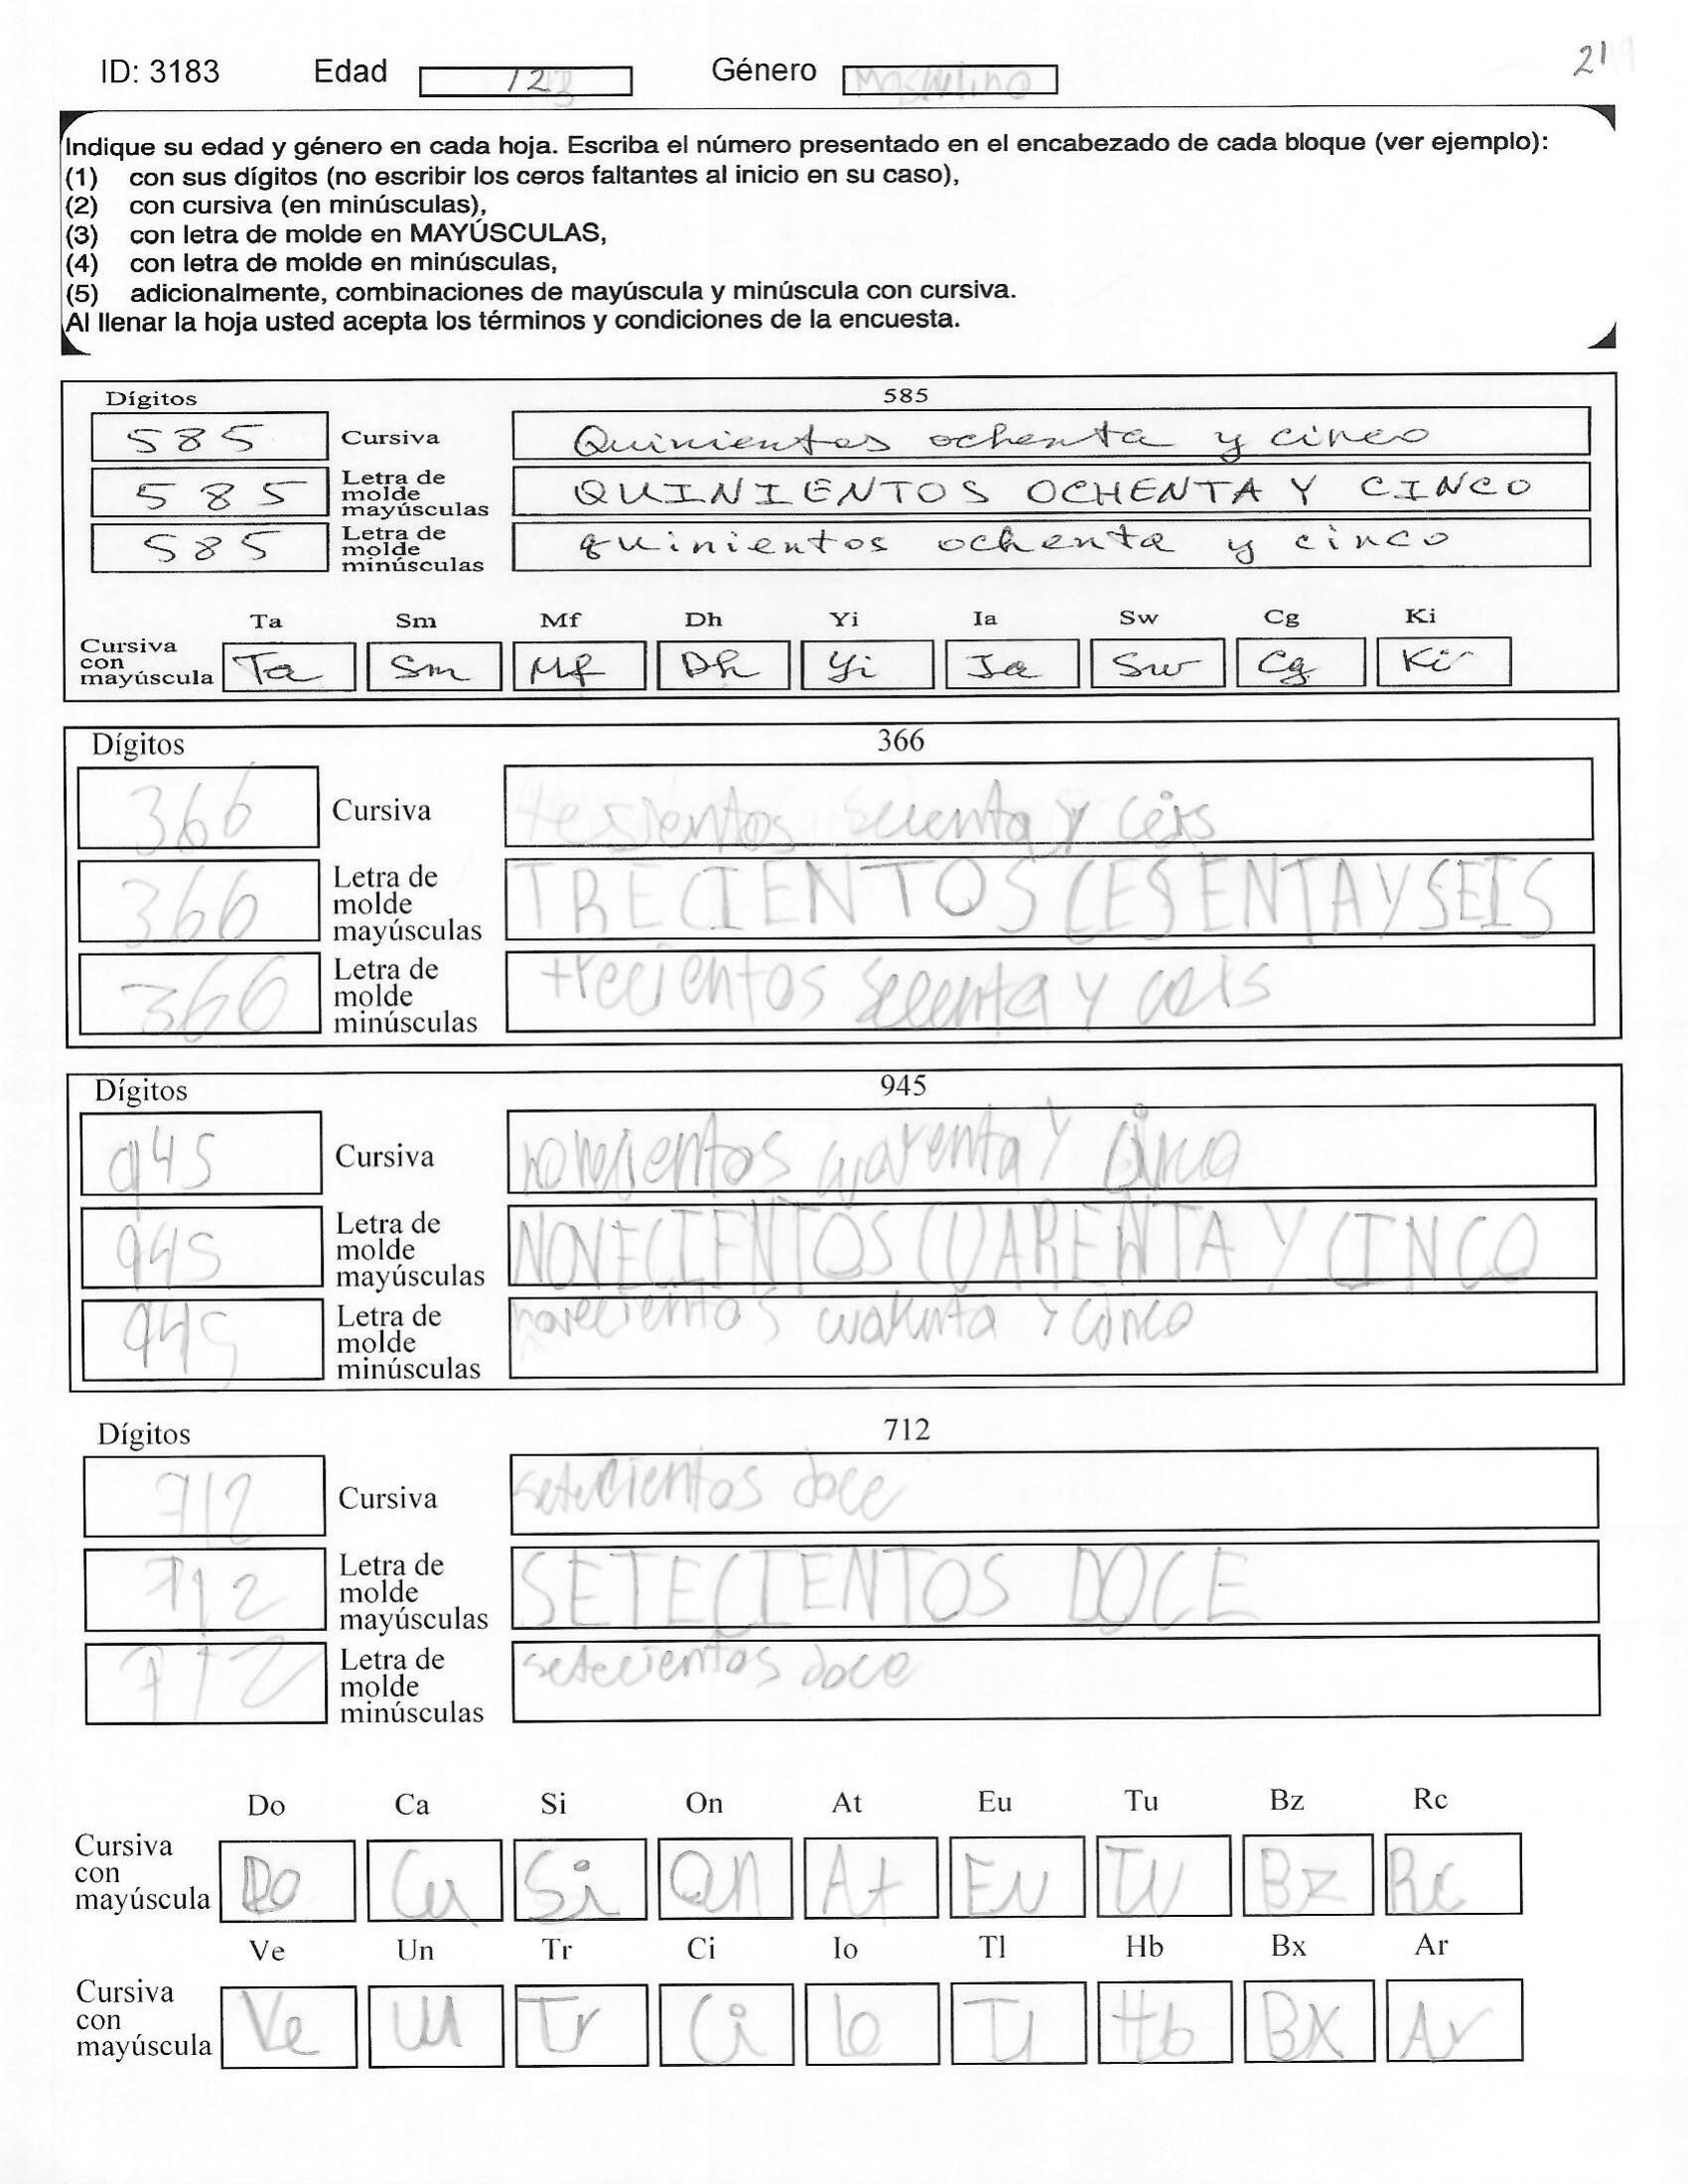 ID: 3183 Edad 12 Género Masculino 21
Indique su edad y género en cada hoja. Escriba el número presentado en el encabezado de cada bloque (ver ejemplo):
(1) con sus dígitos (no escribir los ceros faltantes al inicio en su caso),
(2) con cursiva (en minúsculas),
(3) con letra de molde en MAYÚSCULAS,
(4) con letra de molde en minúsculas,
(5) adicionalmente, combinaciones de mayúscula y minúscula con cursiva.
Al llenar la hoja usted acepta los términos y condiciones de la encuesta.
Dígitos 585
585 Cursiva Quinientos ochenta y cinco
585 Letra de molde mayúsculas QUINIENTOS OCHENTA Y CINCO
585 Letra de molde minúsculas quinientos ochenta y cinco
Ta Sm Mf Dh Yi Ia Sw Cg Ki
Cursiva con mayúscula Ta Sm Mf Dh Yi Ia Sw Cg Ki
Dígitos 366
366 Cursiva tesientos y ceis
366 Letra de molde mayúsculas TRECIENTOS CESENTA Y SEIS
366 Letra de molde minúsculas trecientos y
Dígitos 945
945 Cursiva novecientos cuarenta y cinco
945 Letra de molde mayúsculas NOVECIENTOS CUARENTA Y CINCO
945 Letra de molde minúsculas novecientos cuarenta y cinco
Dígitos 712
712 Cursiva setecientos doce
712 Letra de molde mayúsculas SETECIENTOS DOCE
712 Letra de molde minúsculas setecientos doce
Do Ca Si On At Eu Tu Bz Rc
Cursiva con mayúscula Do Ca Si On At Eu Tu Bz Rc
Ve Un Tr Ci Io Tl Hb Bx Ar
Cursiva con mayúscula Ve Un Tr Ci Io Tl Hb Bx Ar